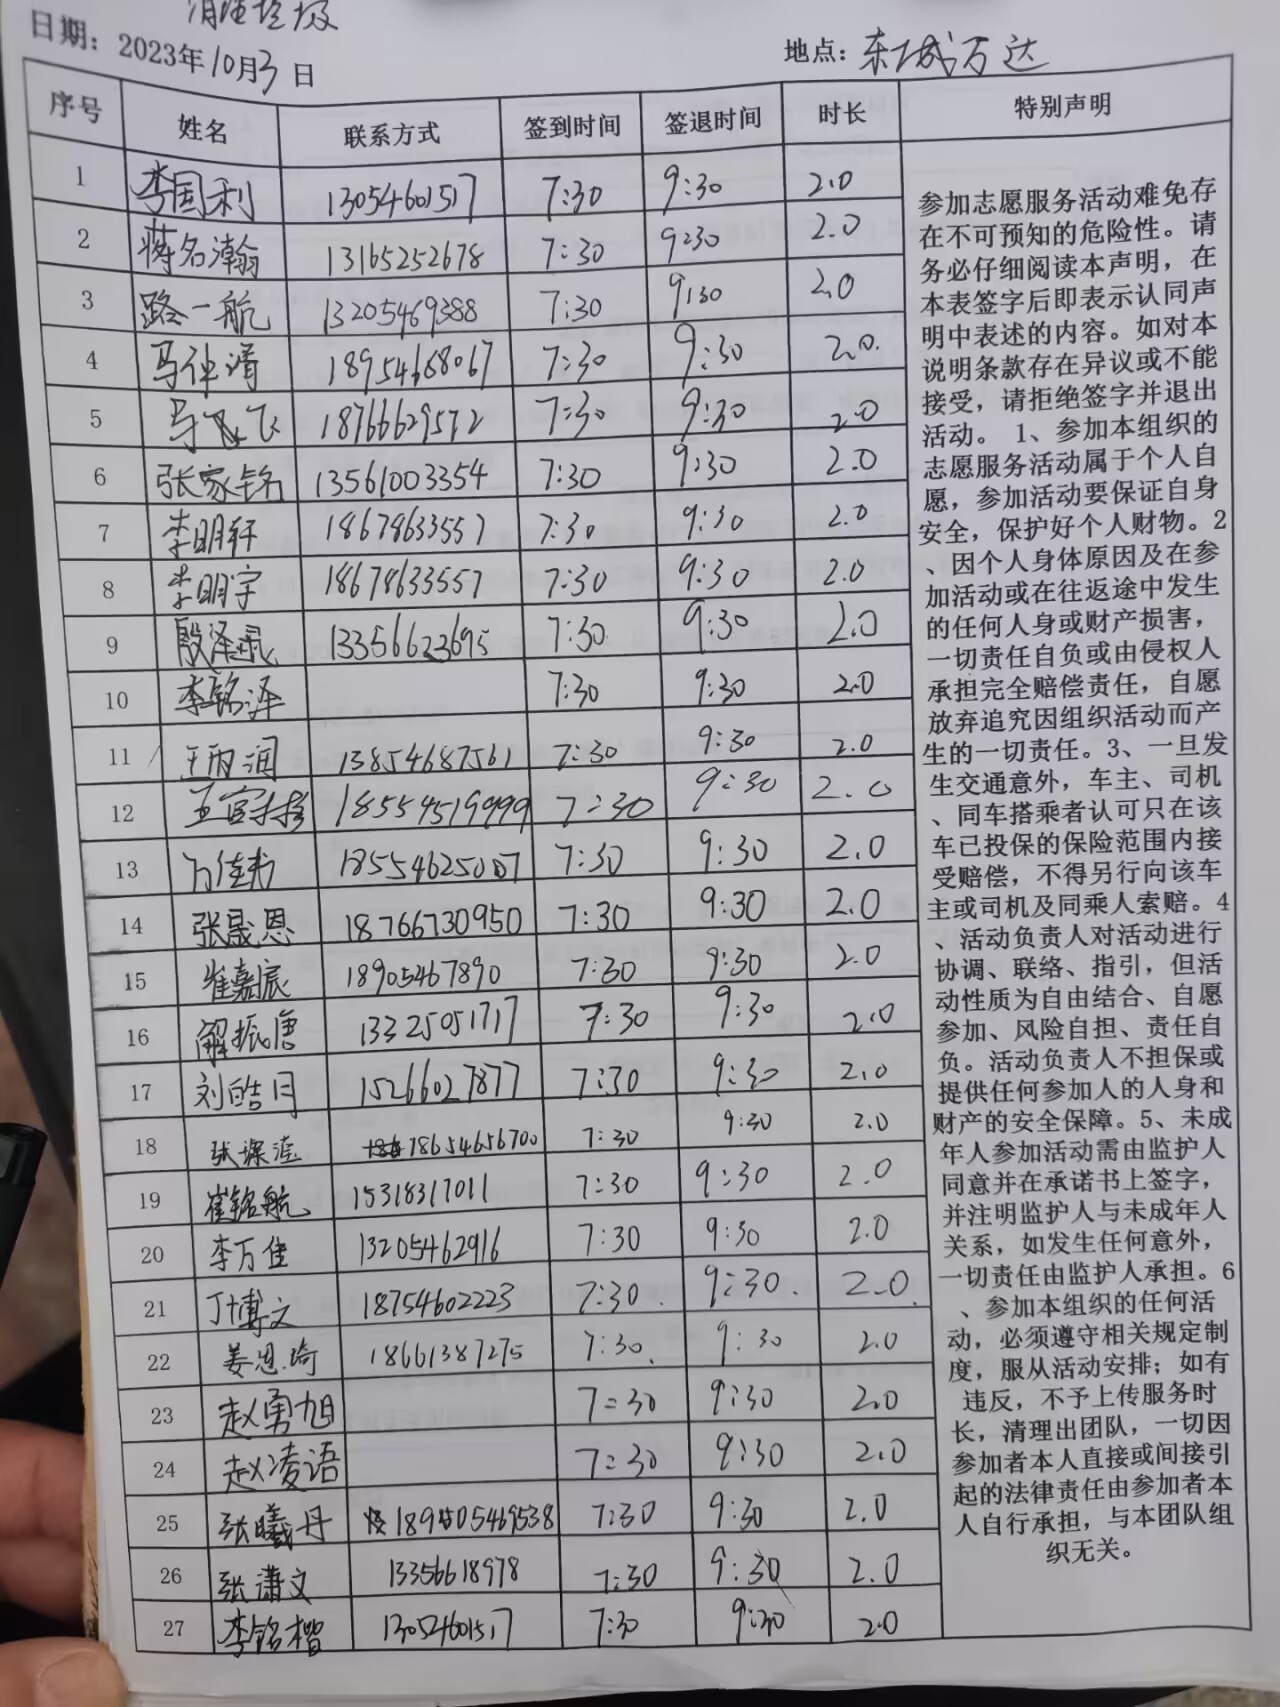 清理垃圾
日期：2023年10月3日 地点：东城万达
序号 姓名 联系方式 签到时间 签退时间 时长 特别声明
1 李国利 13054601517 7:30 9:30 2.0
2 蒋名瀚 13165252678 7:30 9:30 2.0
3 路一航 13205469388 7:30 9:30 2.0
4 马钟清 18954668067 7:30 9:30 2.0
5 马飞 18766629572 7:30 9:30 2.0
6 张家铭 13561003354 7:30 9:30 2.0
7 李明轩 18678633557 7:30 9:30 2.0
8 李明宇 18678633557 7:30 9:30 2.0
9 殷泽 13356623695 7:30 9:30 2.0
10 李铭泽 7:30 9:30 2.0
11 王雨润 13854687561 7:30 9:30 2.0
12 王宣 18554519999 7:30 9:30 2.0
13 佳 18554625007 7:30 9:30 2.0
14 张晟恩 18766730950 7:30 9:30 2.0
15 崔嘉宸 18905467890 7:30 9:30 2.0
16 解振唐 13325051717 7:30 9:30 2.0
17 刘皓月 15266027877 7:30 9:30 2.0
18 张 18654656700 7:30 9:30 2.0
19 崔铭航 15318317011 7:30 9:30 2.0
20 李万佳 13205462916 7:30 9:30 2.0
21 丁博文 18754602223 7:30 9:30 2.0
22 姜恩琦 18661387275 7:30 9:30 2.0
23 赵勇旭 7:30 9:30 2.0
24 赵凌语 7:30 9:30 2.0
25 张曦丹 18905469538 7:30 9:30 2.0
26 张潇文 13356618978 7:30 9:30 2.0
27 李铭楷 13054601517 7:30 9:30 2.0
参加志愿服务活动难免存
在不可预知的危险性。请
务必仔细阅读本声明，在
本表签字后即表示认同声
明中表述的内容。如对本
说明条款存在异议或不能
接受，请拒绝签字并退出
活动。 1、参加本组织的
志愿服务活动属于个人自
愿，参加活动要保证自身
安全，保护好个人财物。2
、因个人身体原因及在参
加活动或在往返途中发生
的任何人身或财产损害，
一切责任自负或由侵权人
承担完全赔偿责任，自愿
放弃追究因组织活动而产
生的一切责任。3、一旦发
生交通意外，车主、司机
、同车搭乘者认可只在该
车已投保的保险范围内接
受赔偿，不得另行向该车
主或司机及同乘人索赔。4
、活动负责人对活动进行
协调、联络、指引，但活
动性质为自由结合、自愿
参加、风险自担、责任自
负。活动负责人不担保或
提供任何参加人的人身和
财产的安全保障。5、未成
年人参加活动需由监护人
同意并在承诺书上签字，
并注明监护人与未成年人
关系，如发生任何意外，
一切责任由监护人承担。6
、参加本组织的任何活
动，必须遵守相关规定制
度，服从活动安排；如有
违反，不予上传服务时
长，清理出团队，一切因
参加者本人直接或间接引
起的法律责任由参加者本
人自行承担，与本团队组
织无关。